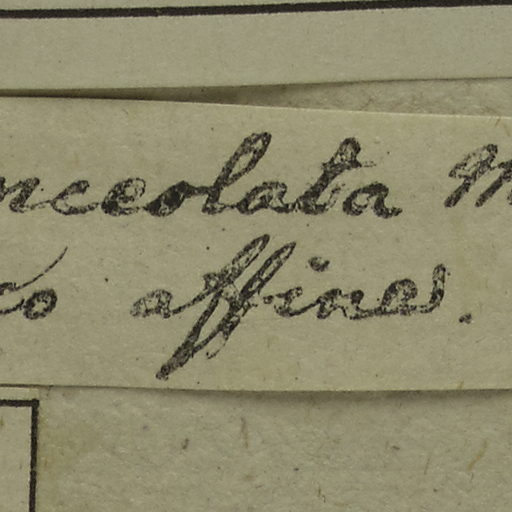 nceolata M
co affines.